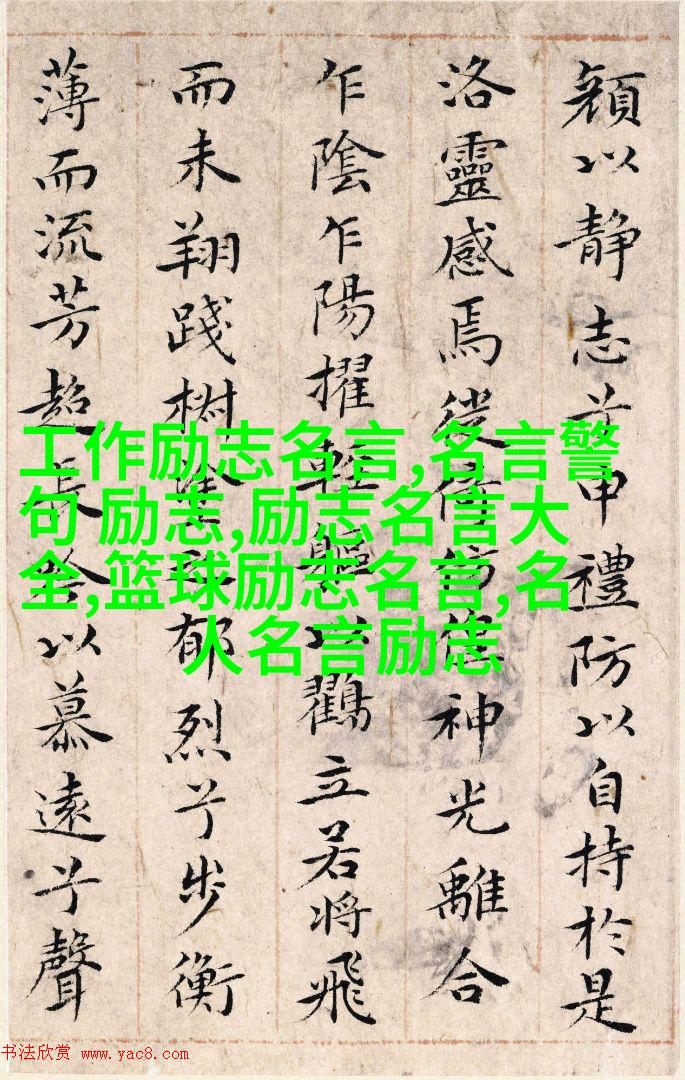 顔以静志兮申禮防以自持於是
洛靈感焉徙倚彷徨神光離合
乍陰乍陽擢輕軀以鶴立若将飛
而未翔踐椒塗之郁烈兮步衡
薄而流芳超長吟以慕遠兮聲
工作励志名言,名言警
句 励志,励志名言大
全,篮球励志名言,名
人名言励志
书法欣赏 www.yac8.com